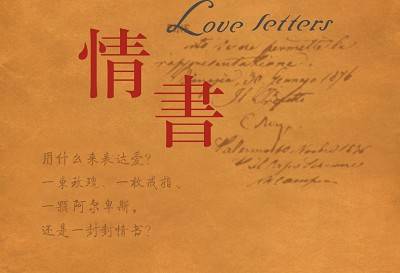 Love letters
si permette la
rappresentazione.
30 Gennajo 1876
Il Prefetto
情書
用什么来表达爱?
一束玫瑰、一枚戒指、
一颗阿尔卑斯,
还是一封封情书?